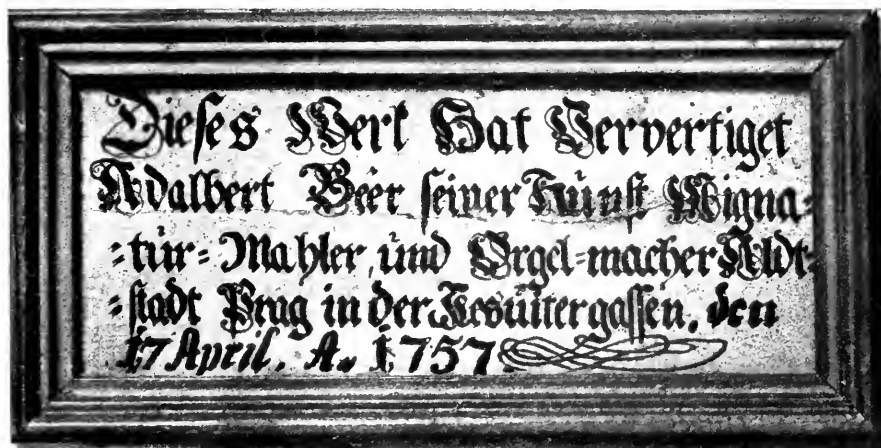 Dieses Werk Hat Ververtiget
Adalbert Beer seiner Kunst Migna=
=tur=Mahler, und Orgel=macher Aldt=
=stadt Prag in der Jesuitergassen. den
17 April. A. 1757.